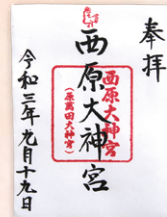 奉拝
西原大神宮
西原大神宮
(原萬田大神宮)
令和三年九月十九日